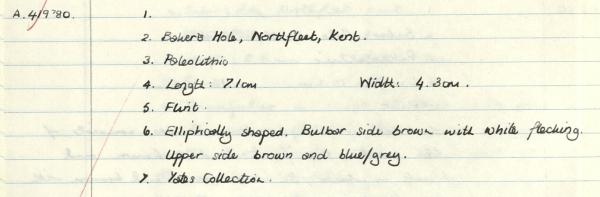 A.4/9'80. 1.
2. Baker's Hole, Northfleet, Kent.
3. Paleolithic
4. Length: 7.1cm Width: 4.3cm.
5. Flint.
6. Elliptically shaped. Bulbar side brown with white flecking.
Upper side brown and blue/grey.
7. Yates Collection.